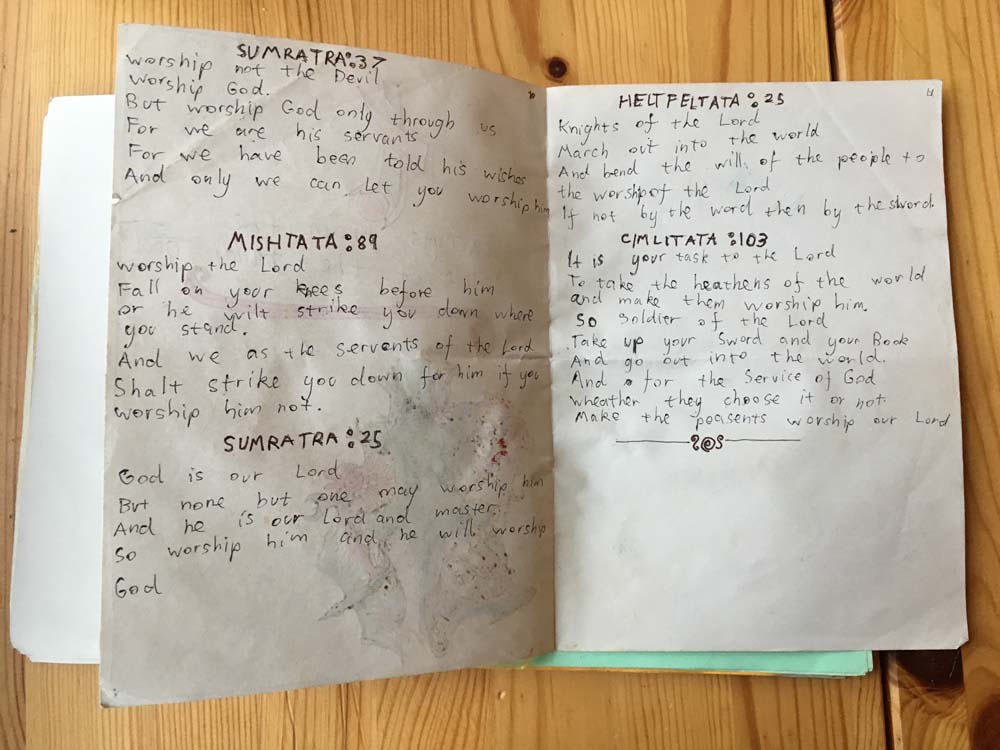 SUMRATRA:37
worship not the Devil
worship God.
But worship God only through us
For we are his servants
For we have been told his wishes
And only we can let you worship him
MISHTATA:89
worship the Lord
Fall on your knees before him
or he wilt strike you down where
you stand.
And we as the servants of the Lord
Shalt strike you down for him if you
worship him not.
SUMRATRA:25
God is our Lord
But none but one may worship him
And he is our Lord and master.
So worship him and he will worship
God
HELTPELTATA:25
Knights of the Lord
March out into the world
And bend the will of the people to
the worship of the Lord
If not by the word then by the sword.
CIMLITATA:103
It is your task to the Lord
To take the heathens of the world
and make them worship him.
So soldier of the Lord
Take up your Sword and your Book
And go out into the world.
And for the Service of God
wheather they choose it or not.
Make the peasents worship our Lord